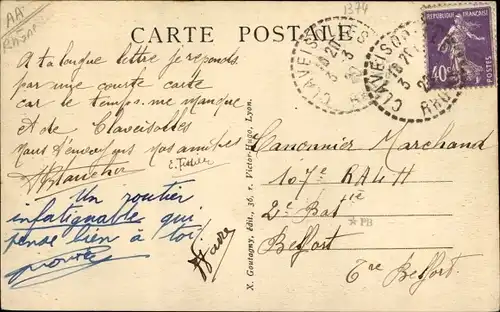 AA
1374
CARTE POSTALE
CLAVEISOLLES
3
RHÔNE
RÉPUBLIQUE FRANÇAISE
40c
POSTES
A ta longue lettre je reponds
par une courte carte
car le temps me manque
et de Claveisolles
nous t'envoyons nos amitiés
E. Tissier
Un routier
infatiguable qui
pense bien à toi
Canonnier Marchand
107e RALH
2e Batie
*PB
Belfort
Tre Belfort
X. Goutagny, édit., 36, r. Victor-Hugo, Lyon.